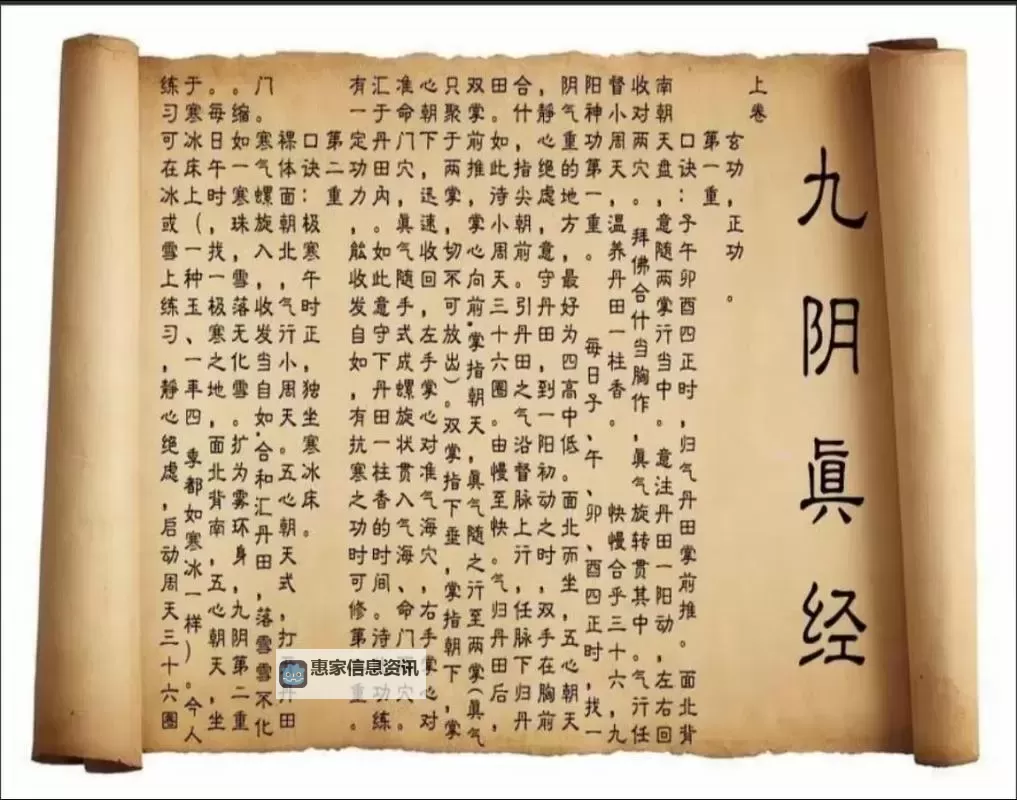 九阴眞经
上卷
玄功，正功。
第一重
口诀：子午卯酉四正时，归气丹田掌前推。面北背
南朝天盘，意随两掌行当中。意注丹田一阳动，左右回
收对两穴。拜佛合什当胸作，眞气旋转贯其中。气行任
督小周天，温养丹田一柱香。快慢合乎三十六，九
阳神功第一重。每日子、午、卯、酉四正时，找一
阴气重的地方，最好为四高中低。面北而坐，五心朝天
，静心绝虑，意守丹田，到一阳初动之时，双手在胸前
合什，指尖朝前。引丹田之气沿督脉上行，任脉下归丹
田。如此待小周天三十六圈。由慢至快。气归丹田后，
双掌前推，掌心向前.掌指朝天，眞气随之行至两掌（眞气
只聚于两掌，切不可放出）。双掌指下垂，掌指朝下，掌
心朝下，迅速收回，左手掌心对准气海穴，右手掌心对
准命门穴，眞气随手式成螺旋状贯入气海、命门穴。
汇于丹田内。如此意守下丹田一柱香的时间。待功练
有一定功力，能收发自如，有抗寒之功时可修第二重。
第二重
口诀：极寒午时正，独坐寒冰床。
裸体面朝北，气行小周天。五心朝天式，打丹田
门。寒气螺旋入，收发当自如.合和汇丹田，落雪雪不化
。缩如一寒珠，雪落无化雪。扩为雾环身，九阴第二重
。每日午时，找一极寒之地，面北背南，五心朝天，坐
于寒冰床上（一种玉、一年四季都如寒冰一样）。今人
练习可在冰或雪上练习，静心绝虑，启动周天三十六圈
惠家信息资讯